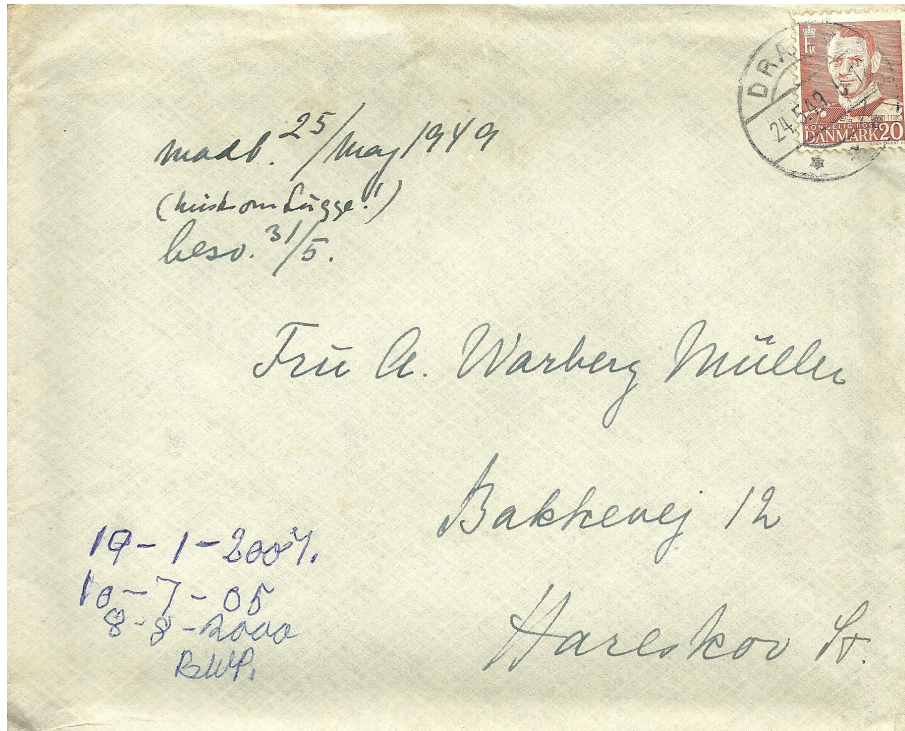 DRA
24.5.49
KONGELIG POST
DANMARK 20
modt. 25/maj 1949
(husk om Lugge!)
besv. 31/5.
Frū A. Warberg Müller
Bakkevej 12
Hareskov St.
19-1-2007.
10-7-05
8-8-2000
BWP.